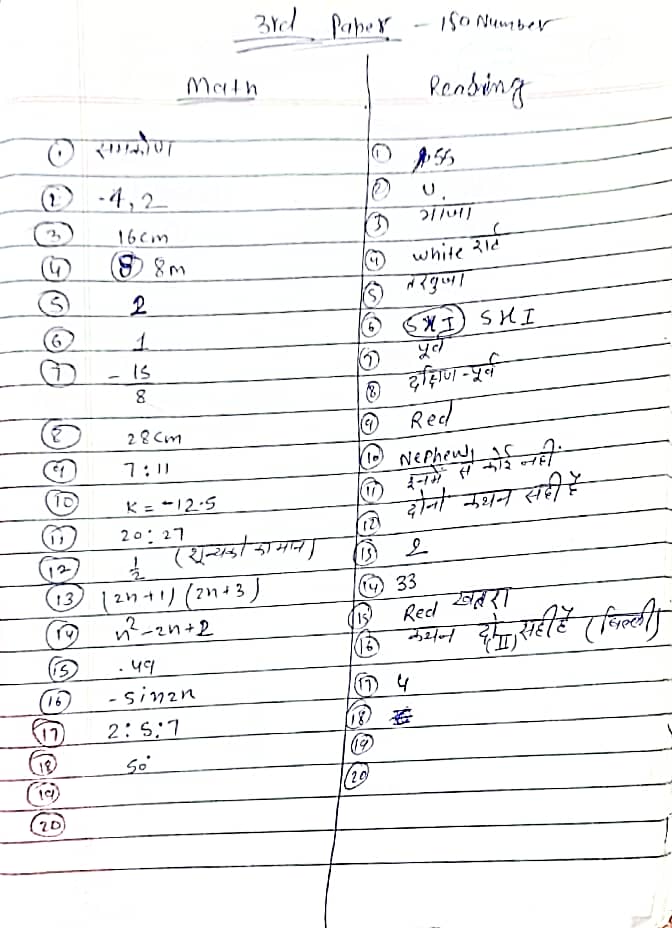 3rd Paper - 150 Number
Math
① समकोण
② -4, 2
③ 16cm
④ 8m
⑤ 2
⑥ 1
⑦ -15/8
⑧ 28cm
⑨ 7:11
⑩ K = -12.5
⑪ 20:27
⑫ 1/2 (शून्यको का मान)
⑬ (2n+1) (2n+3)
⑭ n²-2n+2
⑮ .49
⑯ -sin2n
⑰ 2:5:7
⑱ 50°
⑲
⑳
Reabing
① 1.55
② U.
③ गाजा
④ white शर्ट
⑤ तरबुजा
⑥ SHI
⑦ पूर्व
⑧ दक्षिण-पूर्व
⑨ Red
⑩ Nephew
⑪ इनमें से कोई नहीं.
⑫ दोनों कथन सही हैं
⑬ 2
⑭ 33
⑮ Red खतरा
⑯ कथन दो (II) सही हैं (बिल्ली)
⑰ 4
⑱
⑲
⑳